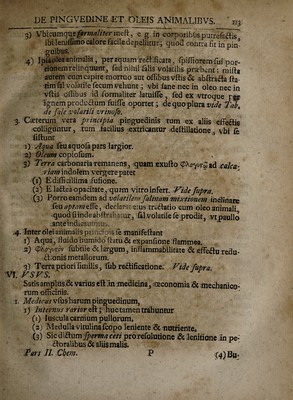 DE PINGVEDINE ET OLEIS ANIMALIBVS. 113
3) Vbicumque formaliter inest, e. g. in corporibus putrefactis,
ibi lenissimo calore facile depellitur, quod contra fit in pin-
guibus.
4) Ipsa olea animalia, per aquam rectificata, spissiorem sui por-
tionem relinquunt, sed nihil salis volatilis præbent: mista
autem cum capite mortuo aut ossibus vstis & abstracta sta-
tim sal volatile secum vehunt; vbi sane nec in oleo nec in
vstis ossibus id formaliter latuisse, sed ex vtroque per
ignem productum fuisse oportet; de quo plura vide Tab.
de sale volatili vrinoso.
3. Cæterum vera principia pinguedinis tum ex aliis effectis
colliguntur, tum facilius extricantur destillatione, vbi se
sistunt
1) Aqua seu aquosa pars largior.
2) Oleum copiosum.
3) Terra carbonaria remanens, quam exusto Φλογιστῷ ad calca-
riam indolem vergere patet
(1) E difficillima fusione.
(2) E lactea opacitate, quam vitro infert. Vide supra.
(3) Porro eamdem ad volatilem salinam mixtionem inclinare
seu aptam esse, declarat eius tractatio cum oleo animali,
quod si inde abstrahatur, sal volatile se prodit, vt paullo
ante indicauimus.
4. Inter olei animalis principia se manifestant
1) Aqua, fluido humido statu & expansione flammea.
2) Φλογιστὸν subtile & largum, inflammabilitate & effectu redu-
ctionis metallorum.
3) Terra priori similis, sub rectificatione. Vide supra.
VI. VSVS.
Satis amplus & varius est in medicina, œconomia & mechanico-
rum officinis.
1. Medicus vsus harum pinguedinum,
1) Internus rarior est; huc tamen trahuntur
(1) Iuscula carnium pullorum.
(2) Medulla vitulina scopo leniente & nutriente.
(3) Sic dictum sperma ceti pro resolutione & lenitione in pe-
ctoralibus & aliis malis.
Pars II. Chem. P (4) Bu-